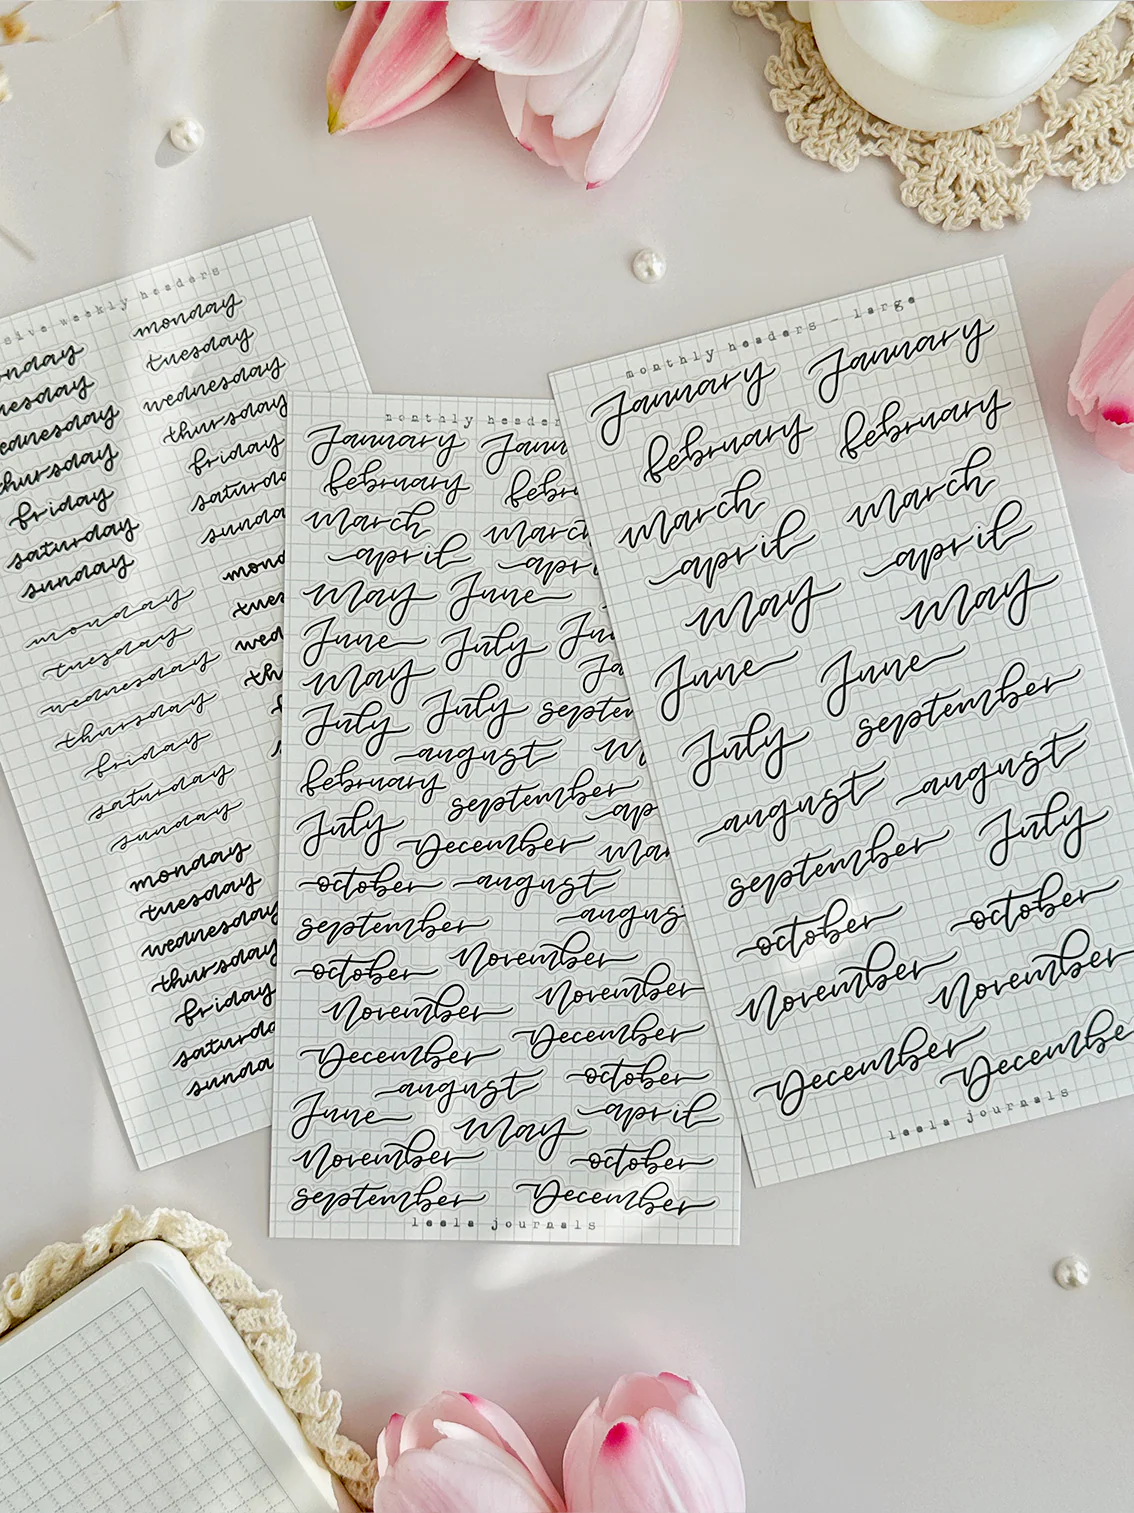 weekly headers
monday
tuesday
wednesday
thursday
friday
saturday
sunday
monday
tuesday
wednesday
thursday
friday
saturday
sunday
monday
tuesday
wednesday
thursday
friday
saturday
sunday
monday
tuesday
wednesday
thursday
friday
monthly
January
february
march
april
May June
June July
May
July July
august
february
september
July December
october august
september
october November
November November
December December
august october
June May april
November october
september December
leela journals
monthly headers - large
January January
february february
march march
april april
May May
June June
July september
august august
september July
october october
November November
December
leela journals